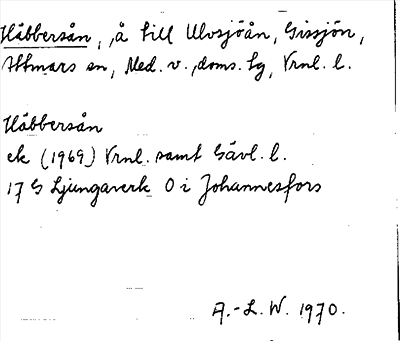 Häbbersån, å till Ulvsjöån, Gissjön,
Attmars sn, Med. v. doms. lg, Vrnl. l.
Häbbersån
ek (1969) Vrnl. samt Gävl. l.
17 G Ljungaverk 0 i Johannesfors
A.-L. W. 1970.